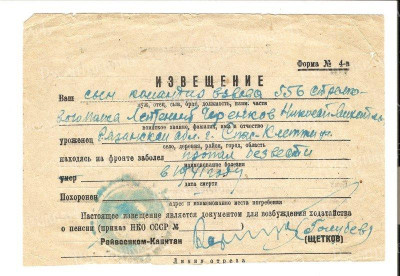 Форма № 4-а
ИЗВЕЩЕНИЕ
Ваш сын командир взвода 556 стрелко-
муж, отец, сын, брат, должность, наим. части
вого полка Горенков Николай
воинское звание, фамилия, имя и отчество
уроженец Рязанской обл. г. Спас-Клепики
село, деревня, район, город, область
находясь на фронте заболел пропал без вести
наименование болезни
умер в 1941 году
дата смерти
Похоронен
адрес и наименование места погребения
Настоящее извещение является документом для возбуждения ходатайства
о пенсии (приказ НКО СССР № (Голубев)
Райвоенком-Капитан (ЩЕТКОВ)
Линия отреза